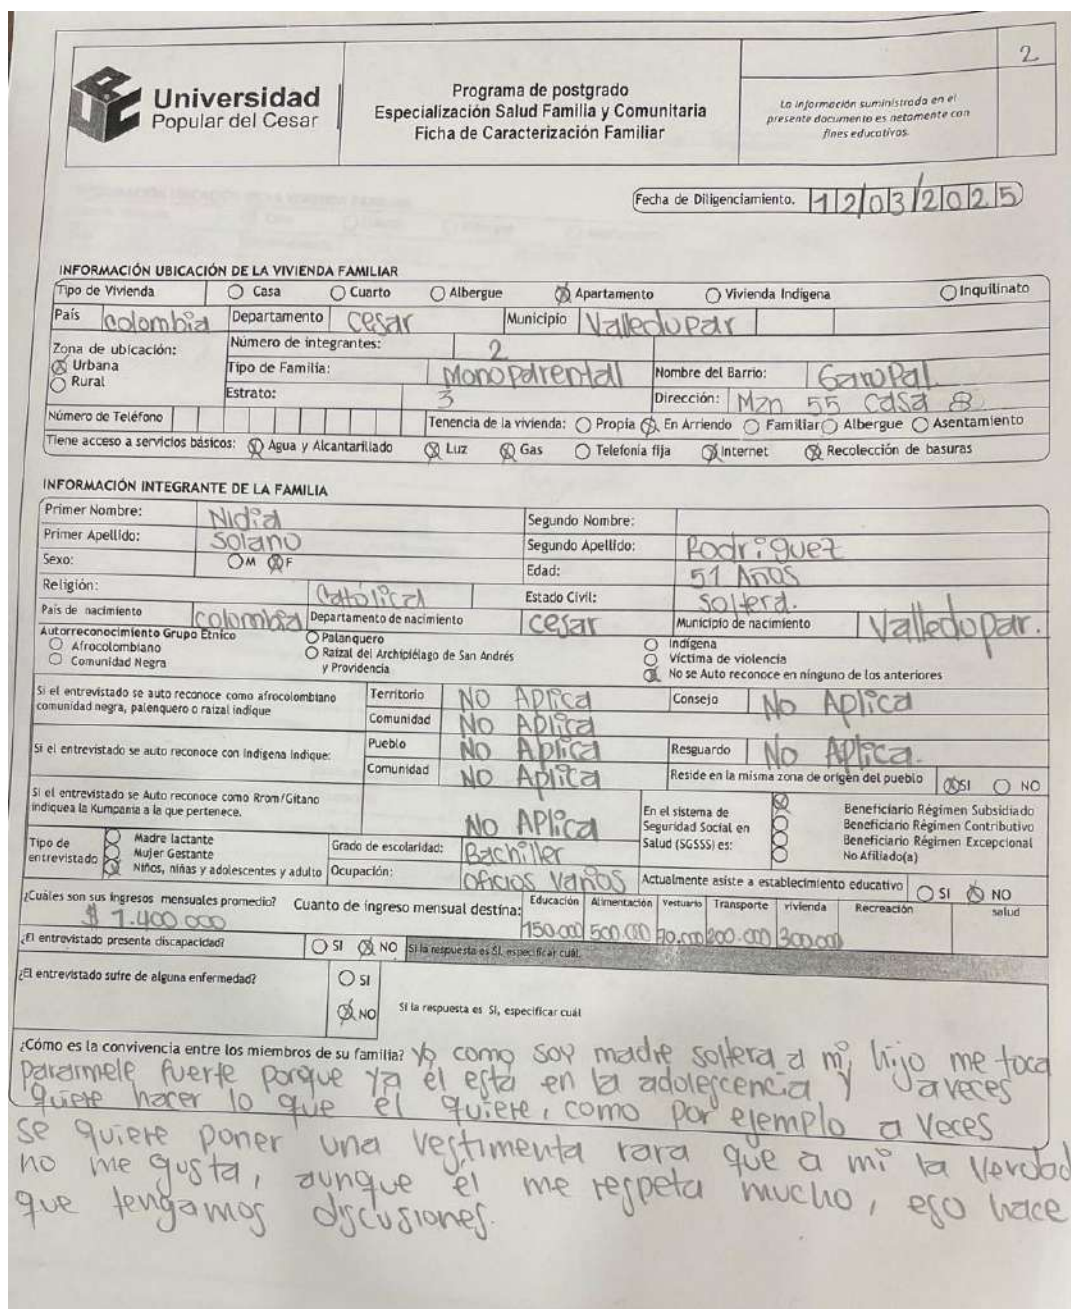 2
Universidad
Popular del Cesar
Programa de postgrado
Especialización Salud Familia y Comunitaria
Ficha de Caracterización Familiar
La información suministrada en el
presente documento es netamente con
fines educativos.
Fecha de Diligenciamiento. 12/03/2025
INFORMACIÓN UBICACIÓN DE LA VIVIENDA FAMILIAR
Tipo de Vivienda Casa Cuarto Albergue Apartamento Vivienda Indígena Inquilinato
País colombia Departamento cesar Municipio Valledupar
Zona de ubicación: Número de integrantes: 2
Urbana Tipo de Familia: Monoparental Nombre del Barrio:
Rural Estrato: 3 Dirección: Mzn 55 casa 8
Número de Teléfono Tenencia de la vivienda: Propia En Arriendo Familiar Albergue Asentamiento
Tiene acceso a servicios básicos: Agua y Alcantarillado Luz Gas Telefonía fija Internet Recolección de basuras
INFORMACIÓN INTEGRANTE DE LA FAMILIA
Primer Nombre: Nidia Segundo Nombre:
Primer Apellido: Solano Segundo Apellido: Rodriguez
Sexo: M F Edad: 51 Años
Religión: Católica Estado Civil: Soltera.
País de nacimiento colombia Departamento de nacimiento cesar Municipio de nacimiento Valledupar.
Autorreconocimiento Grupo Étnico Palanquero Indígena
Afrocolombiano Raizal del Archipiélago de San Andrés Víctima de violencia
Comunidad Negra y Providencia No se Auto reconoce en ninguno de los anteriores
Si el entrevistado se auto reconoce como afrocolombiano Territorio No Aplica Consejo No Aplica
comunidad negra, palenquero o raizal indique Comunidad No Aplica
Si el entrevistado se auto reconoce con Indígena Indique: Pueblo No Aplica Resguardo No Aplica.
Comunidad No Aplica Reside en la misma zona de origen del pueblo SI NO
Si el entrevistado se Auto reconoce como Rrom/Gitano
indiquea la Kumpania a la que pertenece. No Aplica
En el sistema de Beneficiario Régimen Subsidiado
Seguridad Social en Beneficiario Régimen Contributivo
Salud (SGSSS) es: Beneficiario Régimen Excepcional
No Afiliado(a)
Tipo de entrevistado Madre lactante
Mujer Gestante
Niños, niñas y adolescentes y adulto
Grado de escolaridad: Bachiller
Ocupación: Oficios Varios Actualmente asiste a establecimiento educativo SI NO
¿Cuáles son sus ingresos mensuales promedio? Cuanto de ingreso mensual destina: Educación Alimentación Vestuario Transporte vivienda Recreación salud
$ 1.400 000 150.000 500.000 200.000 300.000
¿El entrevistado presente discapacidad? SI NO Si la respuesta es SI, especificar cuál.
¿El entrevistado sufre de alguna enfermedad? SI
NO Si la respuesta es Si, especificar cuál
¿Cómo es la convivencia entre los miembros de su familia? Yo como soy madre soltera a mi hijo me toca
parármele fuerte porque ya el esta en la adolescencia y aveces
quiere hacer lo que el quiere, como por ejemplo a veces
se quiere poner una vestimenta rara que a mi la verdad
no me gusta, aunque él me respeta mucho, eso hace
que tengamos discusiones.